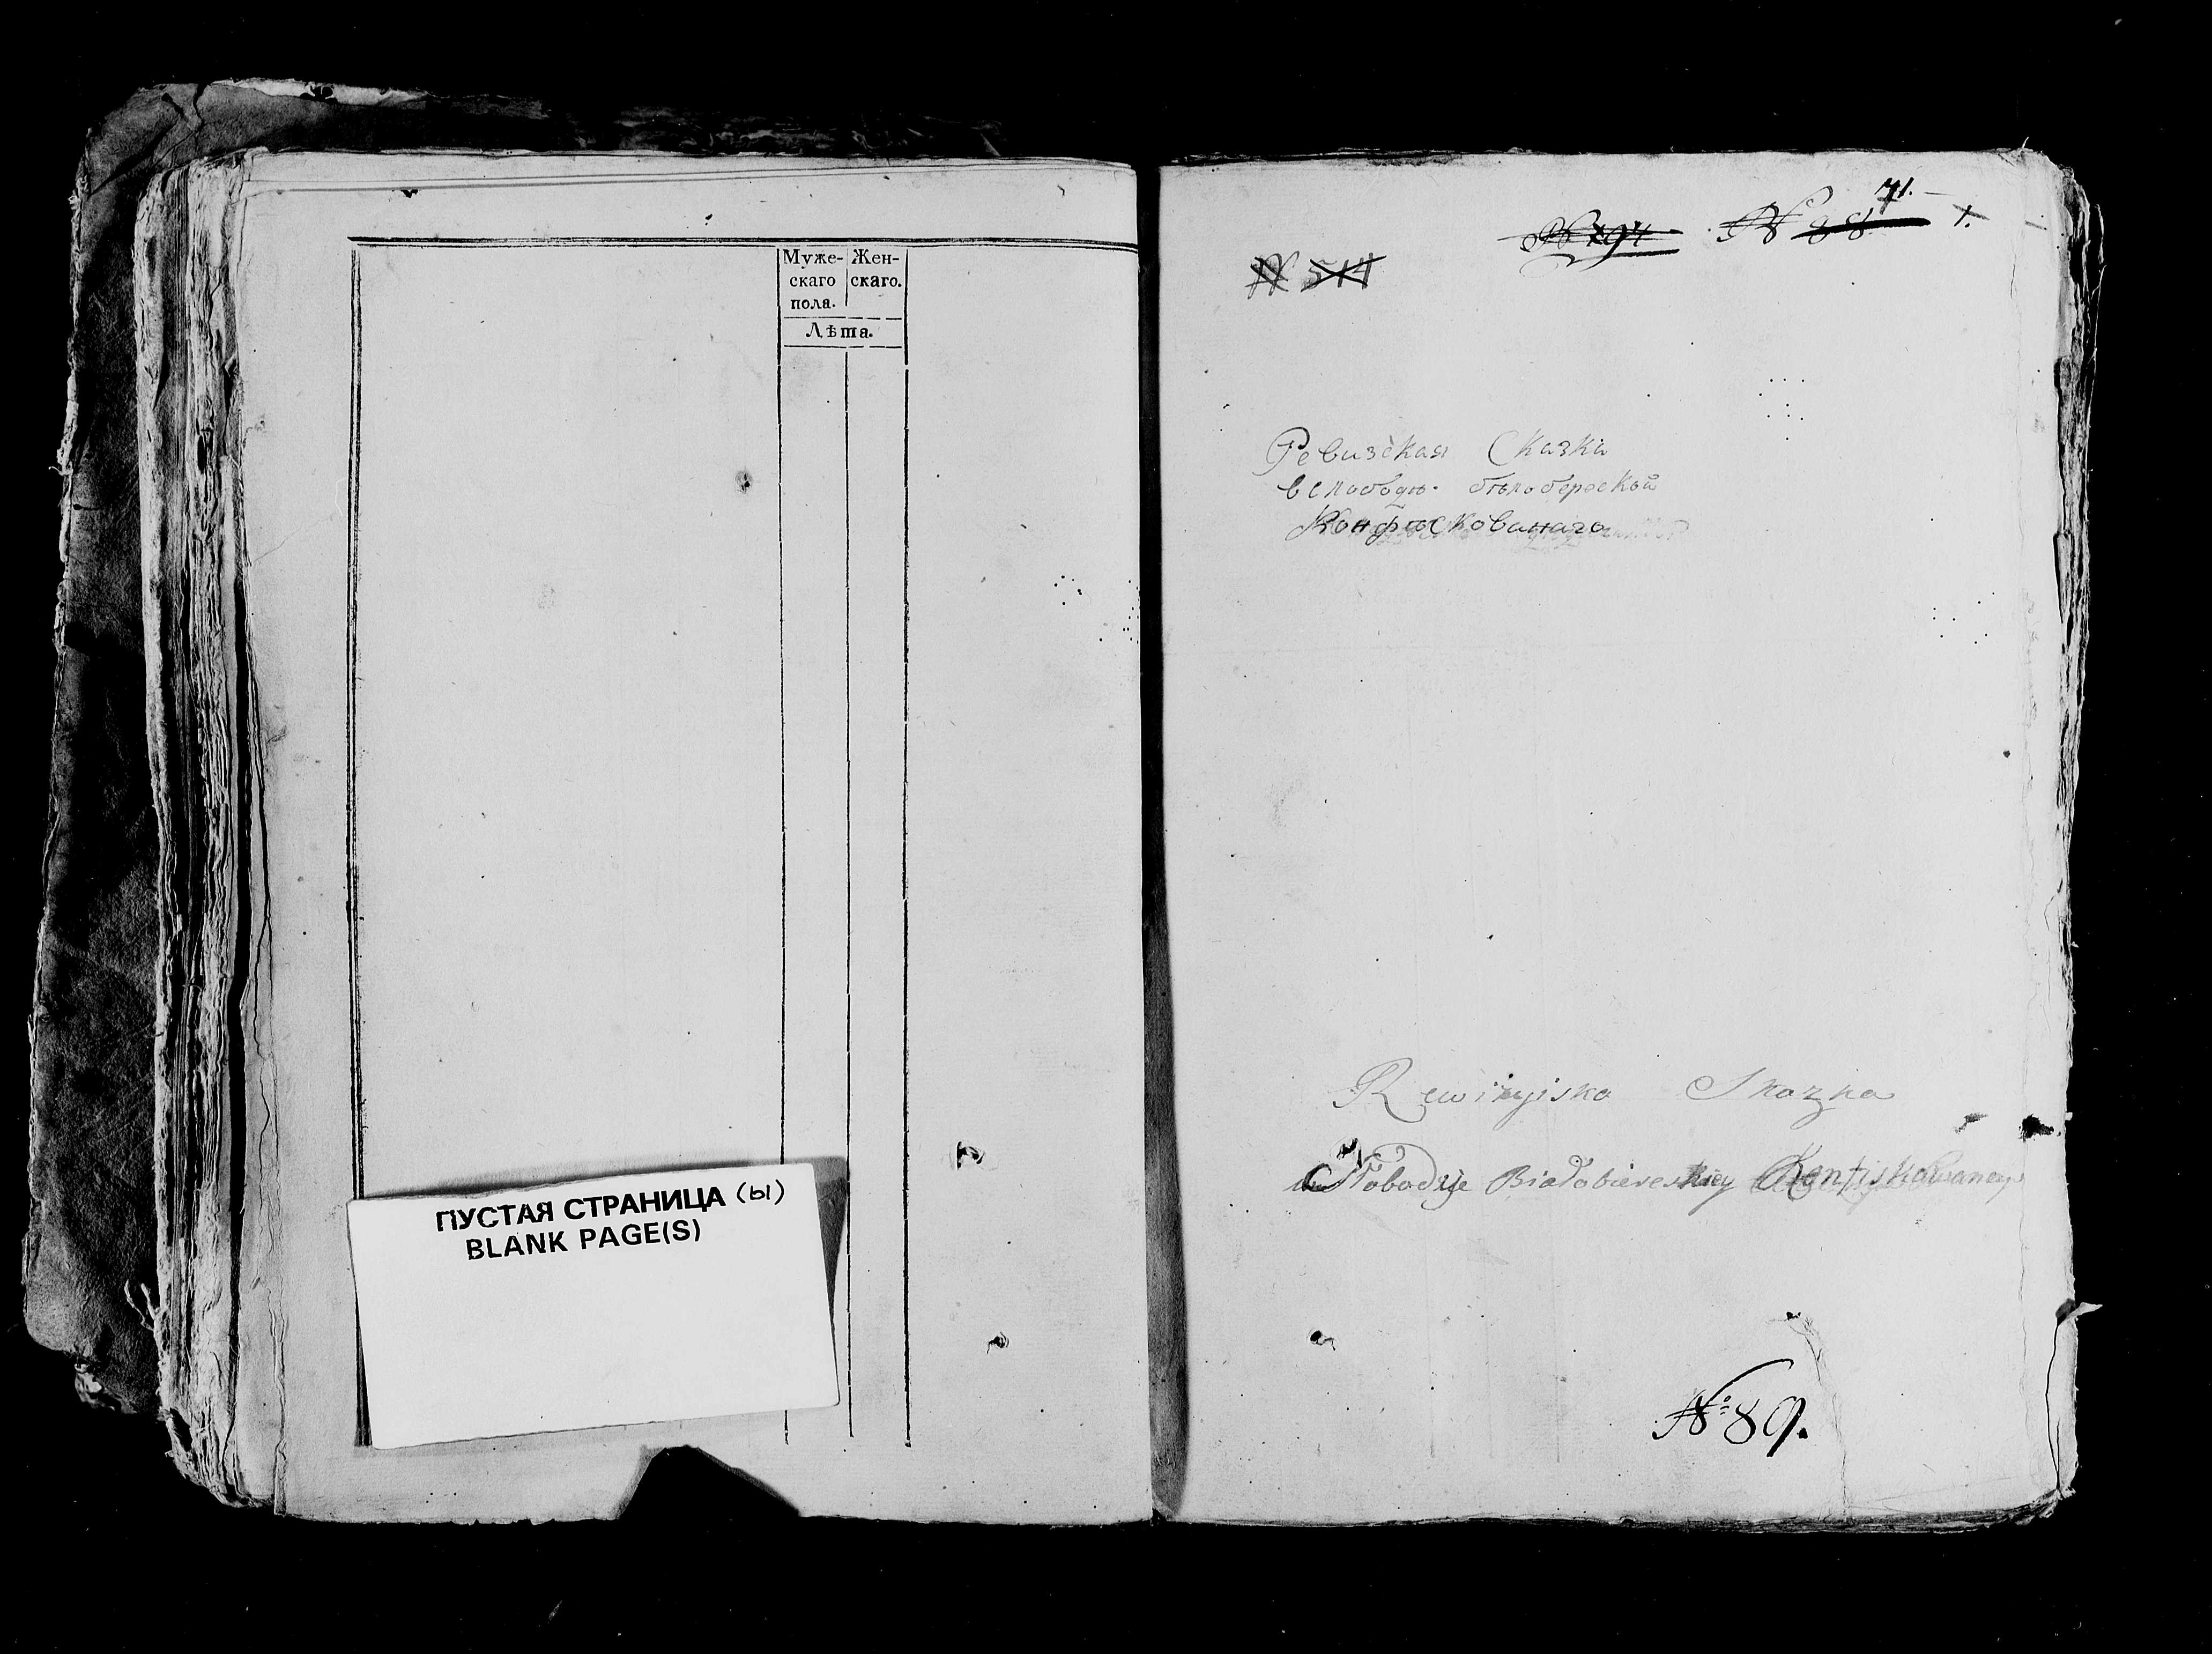 Муже- Жен-
скаго скаго.
пола.
Лѣта.
ПУСТАЯ СТРАНИЦА (ы)
BLANK PAGE(S)
71.
№ 88 1.
№ 514
Ревизская Сказка
в слободѣ бѣлобереской
Конфискованаго
Rewizyiska Skazka
Słobodzie Białobiereskiey Konfiskowaney
№ 89.